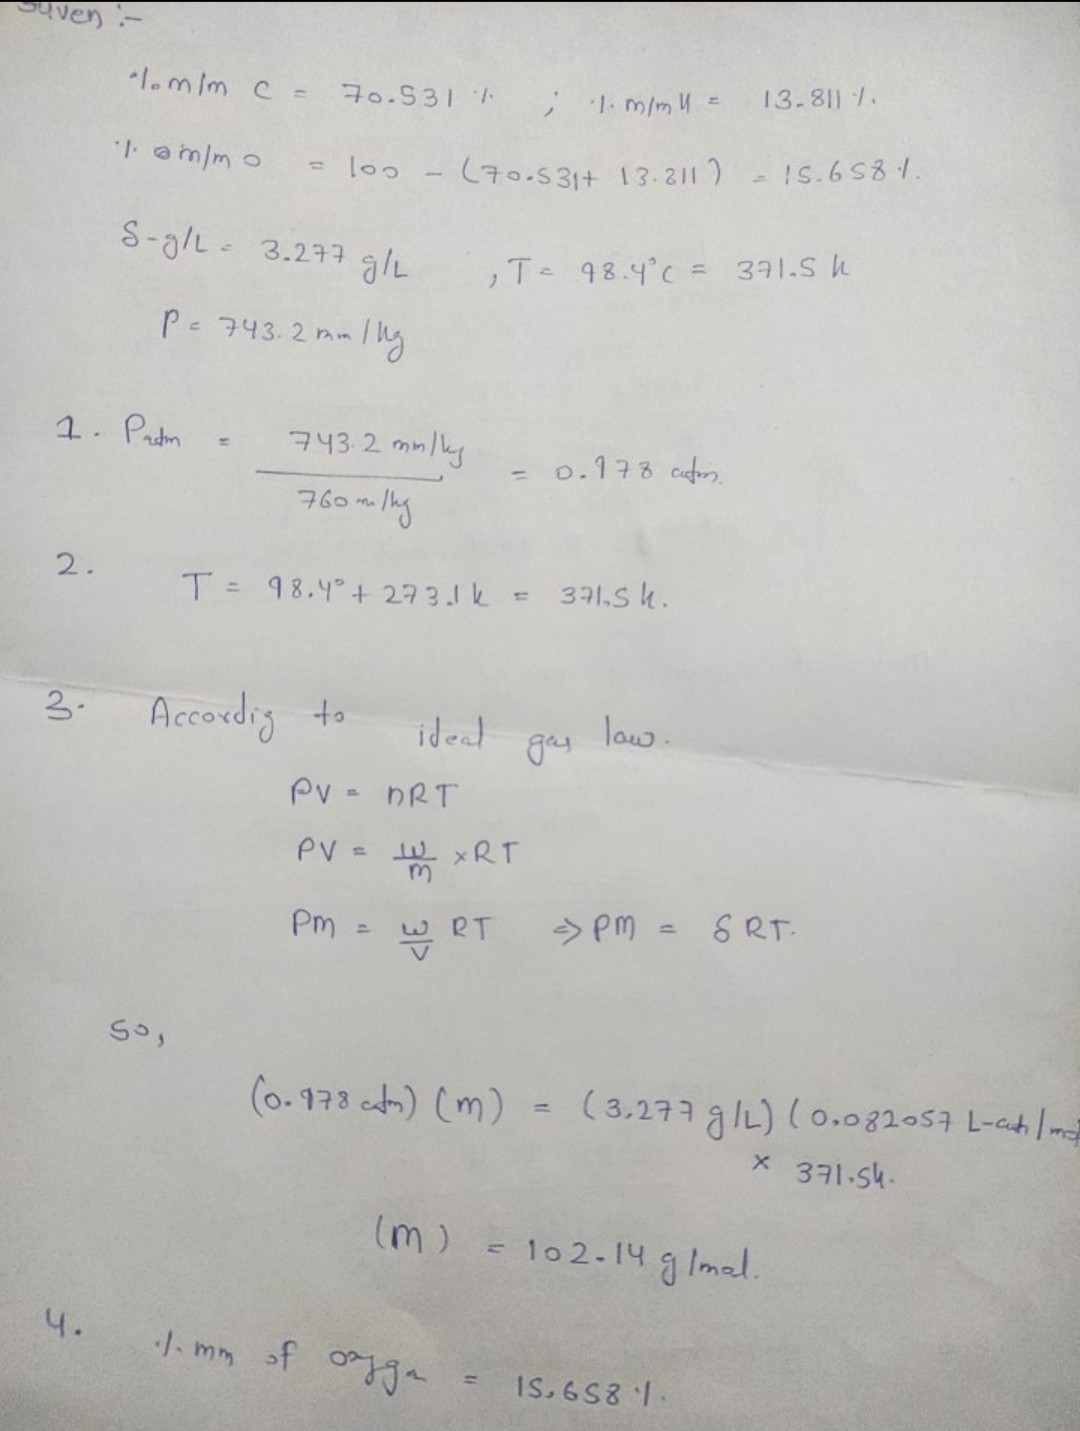 Given :-
% m/m C = 70.531 % ; % m/m H = 13.811 %.
% m/m O = 100 - (70.531+ 13.811) = 15.658 %.
S-g/L = 3.277 g/L , T = 98.4°C = 371.5 k
P = 743.2 mm/Hg
1. Patm = 743.2 mm/Hg / 760 m/Hg = 0.978 atm.
2. T = 98.4° + 273.1 k = 371.5 k.
3. Accordig to ideal gas law.
PV = nRT
PV = w/m × RT
Pm = w/V RT ⇒ PM = δ RT.
so,
(0.978 atm) (m) = (3.277 g/L) (0.082057 L-atm/mol
× 371.5k.
(m) = 102.14 g/mol.
4. % mm of = 15.658 %.